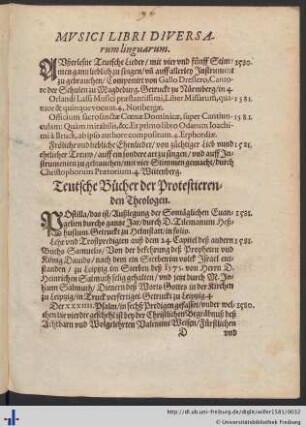 MVSICI LIBRI DIVERSA-
rum linguarum.
Außerlesne Teutsche Lieder / mit vier vnd fünff Stim- 1580.
men gantz lieblich zu singen / vnd auff allerley Instrument
zu gebrauchen / Componirt von Gallo Dreslero, Canto-
re der Schulen zu Magdeburg. Getruckt zu Nürmberg / in 4.
Orlandi Lassi Musici præstantissimi, Liber Missarum, qua- 1581.
tuor & quinque vocum. 4. Noribergæ.
Officium sacrosanctæ Cœnæ Dominicæ, super Cantiun- 1581.
culam: Quàm mirabilis, &c. Ex primo libro Odarum Ioachi-
mi à Bruck, ab ipso authore compositum. 4. Erphordiæ.
Fröliche vnd liebliche Ehrenlieder / von züchtiger Lieb vnnd 1581.
ehrlicher Trewe / auff ein sondere art zu singen / vnd auff In-
strumenten zu gebrauchen / mit vier Stimmen gemacht / durch
Christophorum Prætorium. 4. Wittenberg.
Teutsche Bücher der Protestieren-
den Theologen.
POstilla / das ist / Außlegung der Sontäglichen Euan- 1581.
gelien durchs gantze Jar / durch D. Tilemanum Heß-
husium. Getruckt zu Helmstatt / in folio.
Lehr vnd Trostpredigten auß dem 24. Capitel deß andern 1581.
Buchs Samuelis / Von der bekehrung deß Propheten vnd
König Dauids / nach dem ein Sterben im volck Israel ent-
standen / zu Leipzig im Sterben deß 1575. von Herrn D.
Heinrichen Salmuth selig gehalten / vnd jetzt durch M. Jo-
han Salmuth / Dienern deß Worts Gottes in der Kirchen
zu Leipzig / in Truck verfertiget. Getruckt zu Leipzig. 4.
Der XXXIIII. Psalm / in sechß Predigen gefasset / vnder wel- 1580.
chen die vierdte geschehē ist bey der Christlichen Begräbnuß deß
Achtbarn vnd Wolgelehrten Valentini Weisen / Fürstlichen
D vnd
http://dl.ub.uni-freiburg.de/diglit/willer1581/0032
© Universitätsbibliothek Freiburg